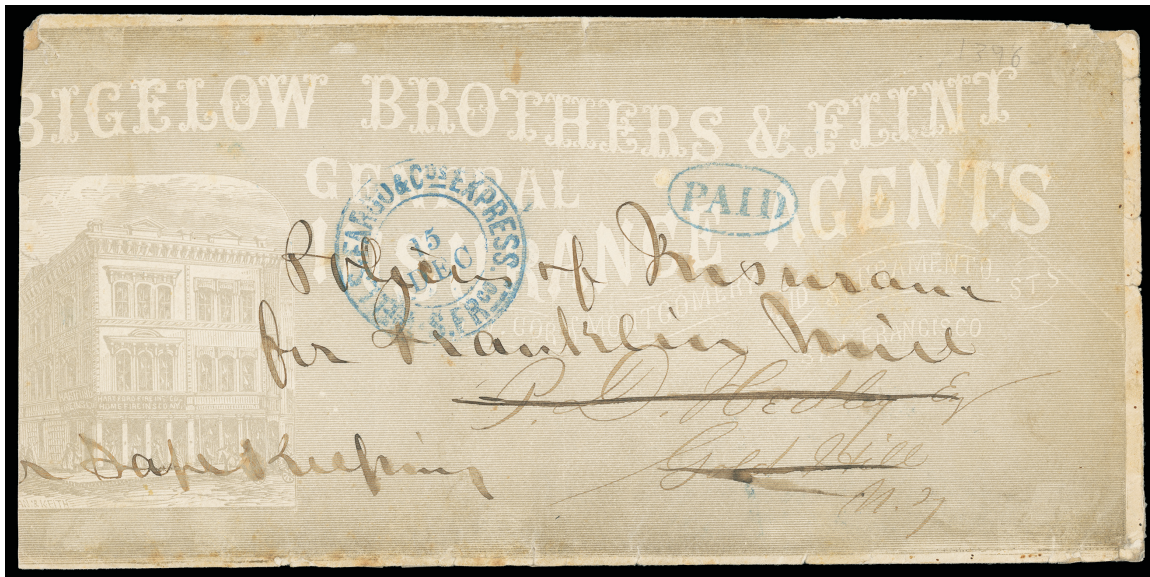 1396
BIGELOW BROTHERS & FLINT
GENERAL
INSURANCE AGENTS
COR. MONTGOMERY AND SACRAMENTO STS
SAN FRANCISCO
WELLS, FARGO & Co's EXPRESS.
15
DEC
S. FR co
PAID
Policies of Insurance
for Franklin Mill
P. O. Hedly Esq
Gold Hill
N. T
Safe Keeping
HARTFORD FIRE INS. CO.
HOME FIRE INS. CO.